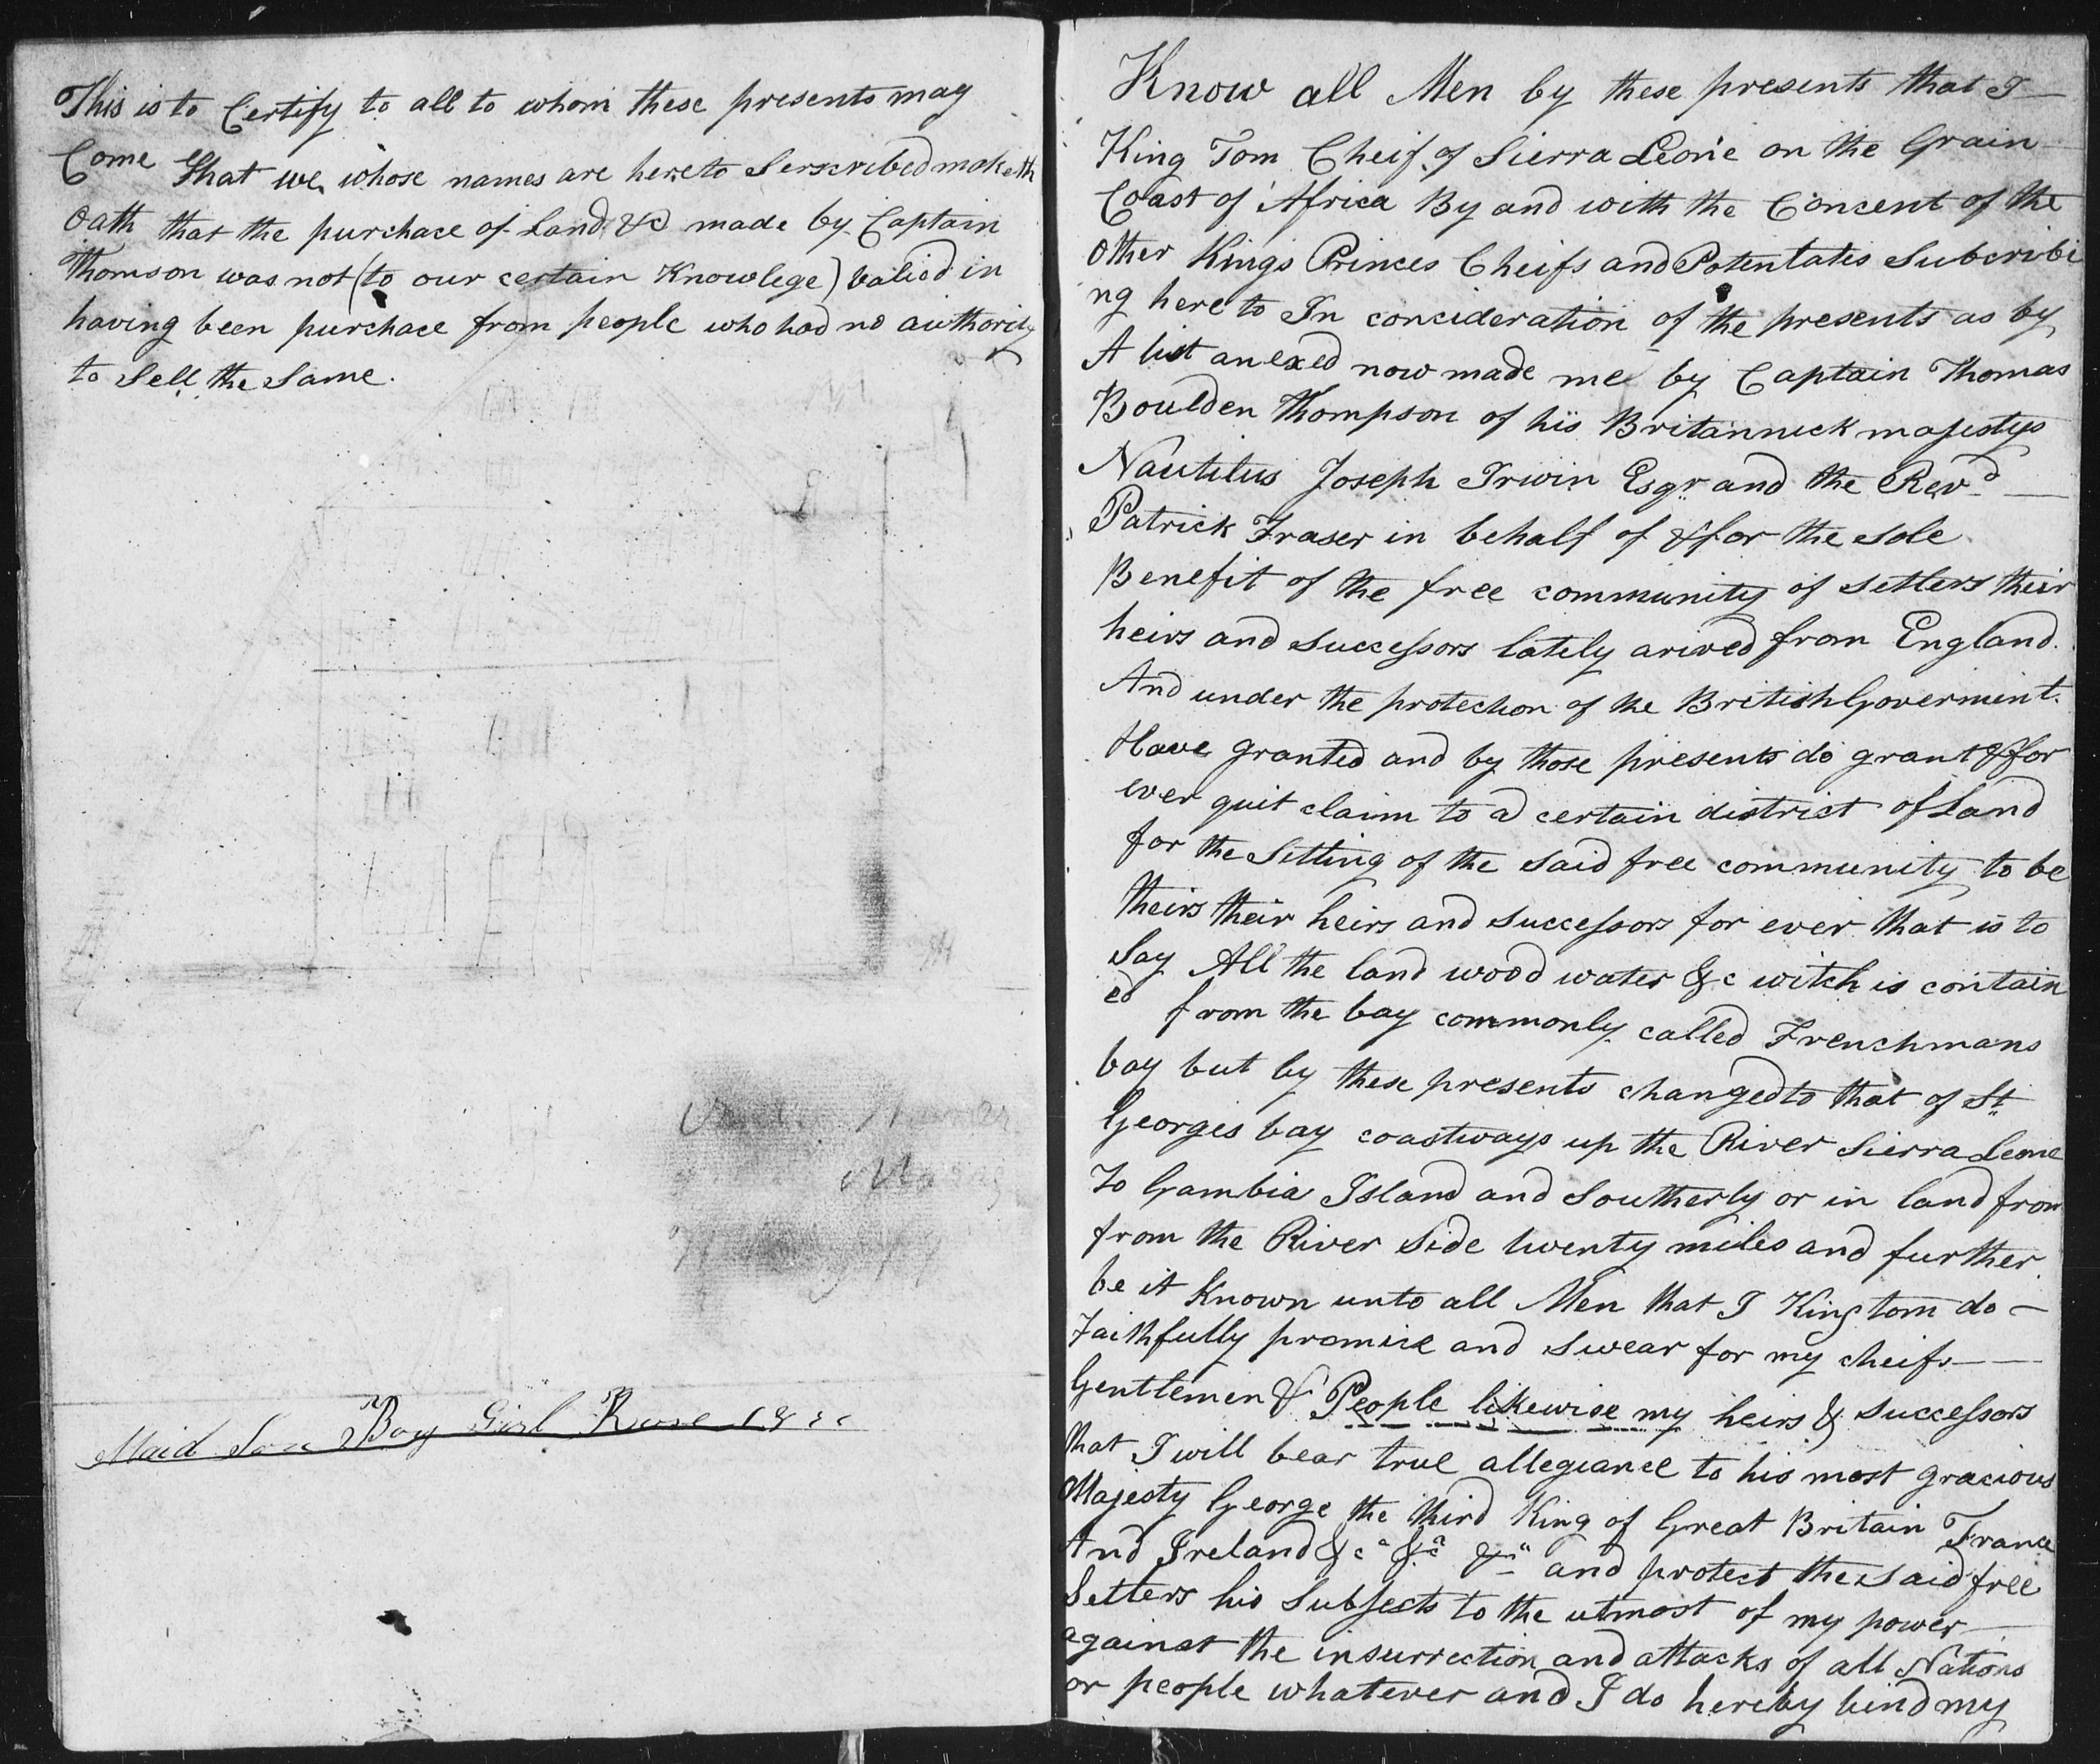 This is to Certify to all to whom these presents may
Come that we whose names are hereto Serscribed maketh
Oath that the purchace of Land &c made by Captain
Thomson was not (to our certain Knowlege) valied in
having been purchace from people who had no authority
to Sell the Same.
Maid Boy Girl
Know all Men by these presents that I
King Tom Cheif of Sierra Leone on the Grain
Coast of Africa By and with the Concent of the
Other Kings Princes Cheifs and Potentates Subcribi
ng hereto In concideration of the presents as by
A list anexed now made me by Captain Thomas
Boulden Thompson of his Britannick majestys
Nautilus Joseph Irwin Esqr and the Revd
Patrick Fraser in behalf of & for the sole
Benefit of the free community of setlers their
heirs and successors lately arived from England.
And under the protection of the British Goverment.
Have granted and by those presents do grant & for
ever quit claim to a certain district of Land
for the Setling of the said free community to be
theirs their heirs and successors for ever that is to
Say All the land wood water &c witch is contain
ed from the bay commonly called Frenchmans
bay but by these presents changed to that of St
Georges bay coastways up the River Sierra Leone
To Gambia Island and Southerly or in land from
from the River side twenty miles and further
be it Known unto all Men that I King tom do
Faithfully promise and swear for my cheifs
Gentlemen & People likewise my heirs & successors
that I will bear true allegiance to his most gracious
Majesty George the third King of Great Britain France
And Ireland &ca &ca &a and protect the said free
Setlers his Subjects to the utmost of my power
against the insurrection and attacks of all Nations
or people whatever and I do hereby bind my